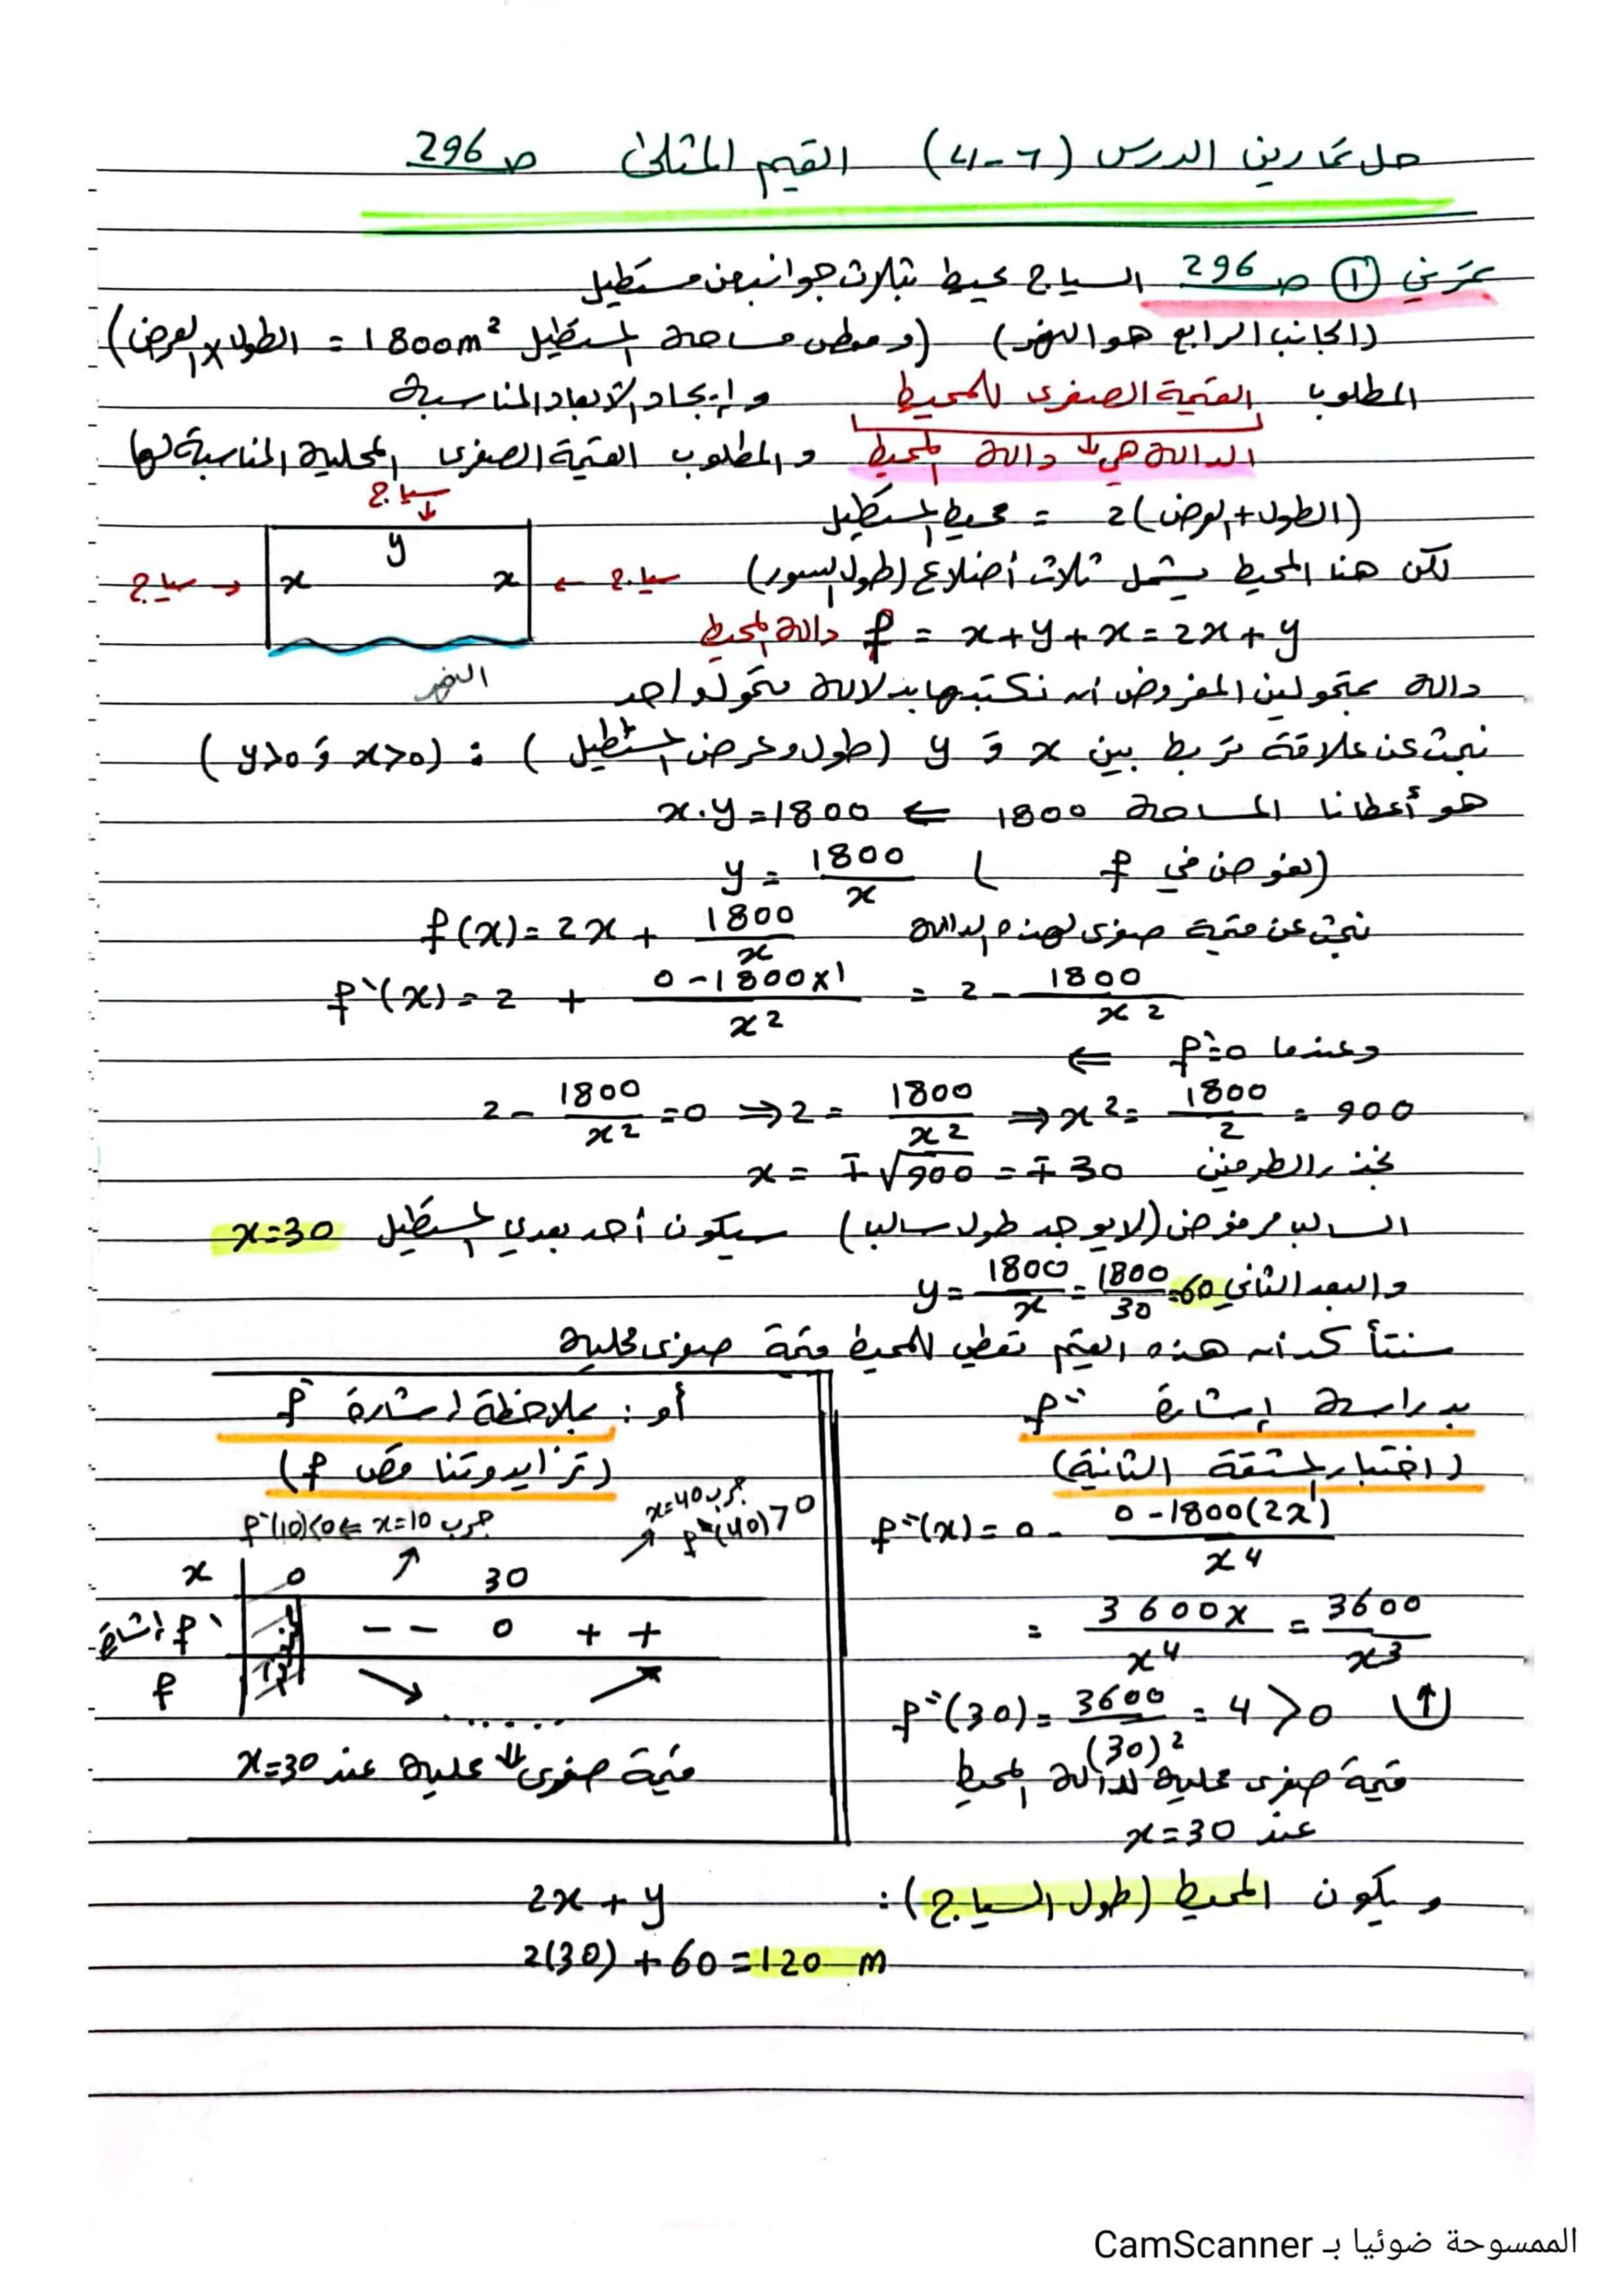 حل تمارين الدرس (4-7) القيم المثلى ص 296
تمرين ① ص 296 السياج يحيط بثلاث جوانب من مستطيل
(الجانب الرابع هو النهر) (ومعطى مساحة المستطيل 1800m² = الطول × العرض)
المطلوب القيمة الصغرى للمحيط وإيجاد الأبعاد المناسبة
الدالة هي ↓ دالة المحيط والمطلوب القيمة الصغرى المحلية المناسبة لها
سياج ↓
(الطول + العرض) 2 = محيط المستطيل
y
لكن هنا المحيط يشمل ثلاث أضلاع (طول السور)
سياج → x x ← سياج
دالة المحيط f = x+y+x = 2x+y
النهر
دالة بمتحولين المفروض أن نكتبها بدلالة متحول واحد
نبحث عن علاقة تربط بين x و y (طول وعرض المستطيل) : (x>0 و y>0)
هو أعطانا المساحة 1800 ⇐ x.y = 1800
y = 1800/x (نعوض في f)
نبحث عن قيمة صغرى لهذه الدالة f(x) = 2x + 1800/x
f`(x) = 2 + (0 - 1800×1)/x² = 2 - 1800/x²
وعندما f`=0 ⇐
2 - 1800/x² = 0 ⇒ 2 = 1800/x² ⇒ x² = 1800/2 = 900
نجذر الطرفين x = ∓√900 = ∓30
السالب مرفوض (لا يوجد طول سالب) سيكون أحد بعدي المستطيل x=30
والبعد الثاني y = 1800/x = 1800/30 = 60
سنتأكد أن هذه القيم تعطي للمحيط قيمة صغرى محلية
بدراسة إشارة f``
(اختبار المشتقة الثانية)
f``(x) = 0 - (0 - 1800(2x))/x⁴
= 3600x/x⁴ = 3600/x³
f``(30) = 3600/(30)² = 4 > 0
قيمة صغرى محلية لدالة المحيط
عند x=30
أو : بملاحظة إشارة f`
(تزايد وتناقص f)
نجرب x=40
f`(40)>0
نجرب x=10 ⇒ f`(10)<0
x 0 30
إشارة f` - - 0 + +
f ↘ ...... ↗
قيمة صغرى محلية ⇓ عند x=30
ويكون المحيط (طول السياج) : 2x+y
2(30) + 60 = 120 m
الممسوحة ضوئيا بـ CamScanner